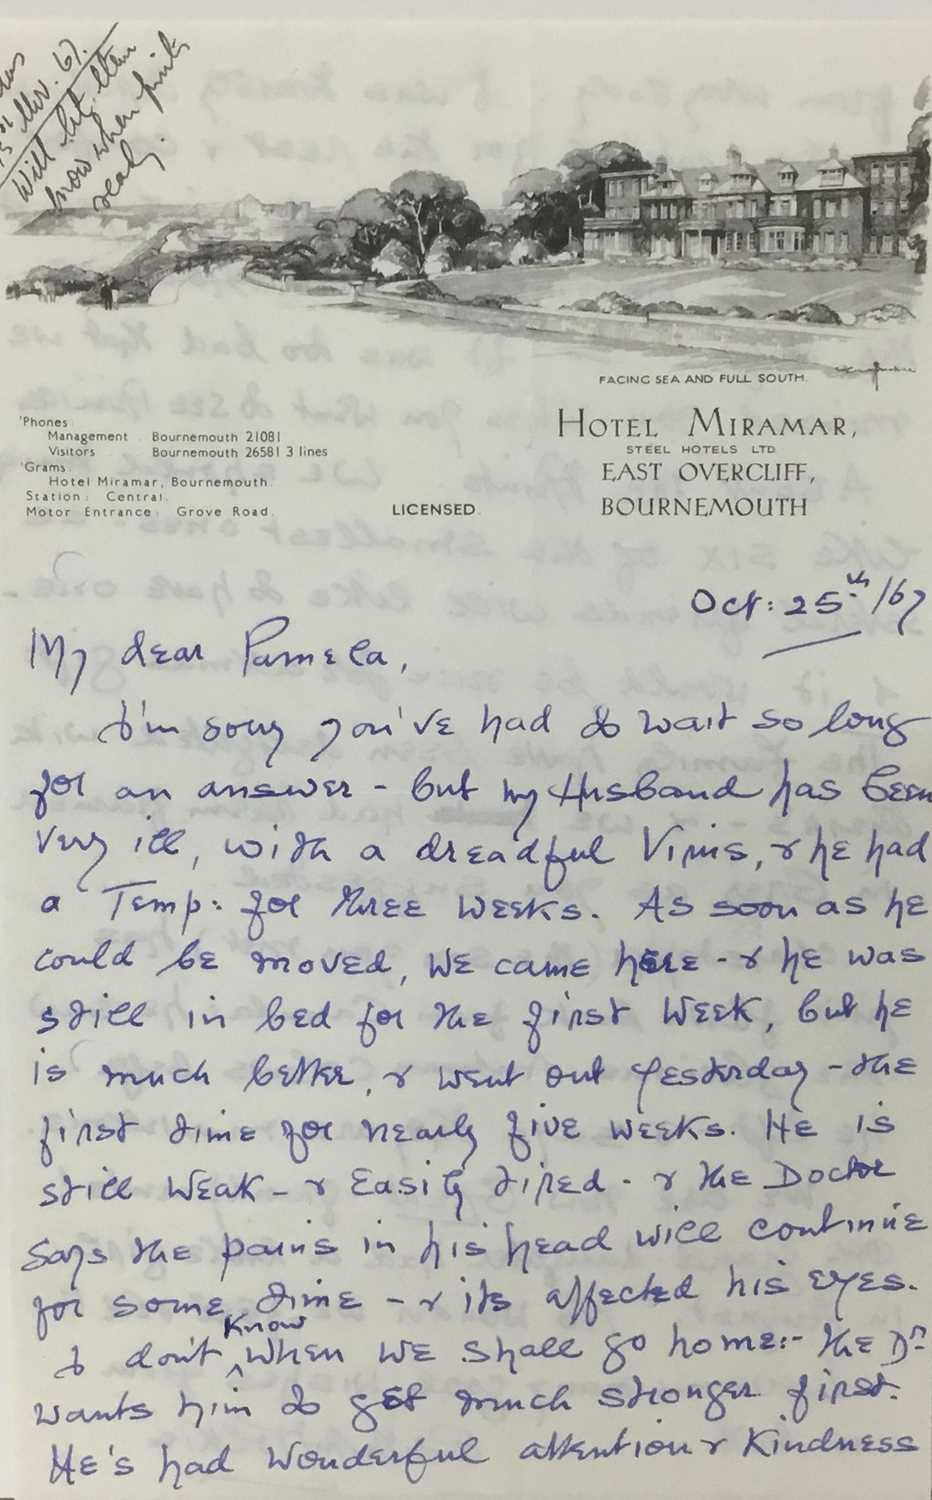 Nov. 67.
Will let them
know when prints
ready.
FACING SEA AND FULL SOUTH.
'Phones:
Management . Bournemouth 21081
Visitors Bournemouth 26581 3 lines
'Grams:
Hotel Miramar, Bournemouth.
Station: Central.
Motor Entrance: Grove Road.
LICENSED.
HOTEL MIRAMAR,
STEEL HOTELS LTD
EAST OVERCLIFF,
BOURNEMOUTH
Oct: 25th /67
My dear Pamela,
I'm sorry you've had to wait so long
for an answer - but my Husband has been
very ill, with a dreadful Virus, & he had
a Temp: for three weeks. As soon as he
could be moved, we came here - & he was
still in bed for the first week, but he
is much better, & went out yesterday - the
first time for nearly five weeks. He is
still weak - & easily tired - & the Doctor
says the pains in his head will continue
for some time - & its affected his eyes.
I don't know when we shall go home:- the Dr
wants him to get much stronger first.
He's had wonderful attention & kindness